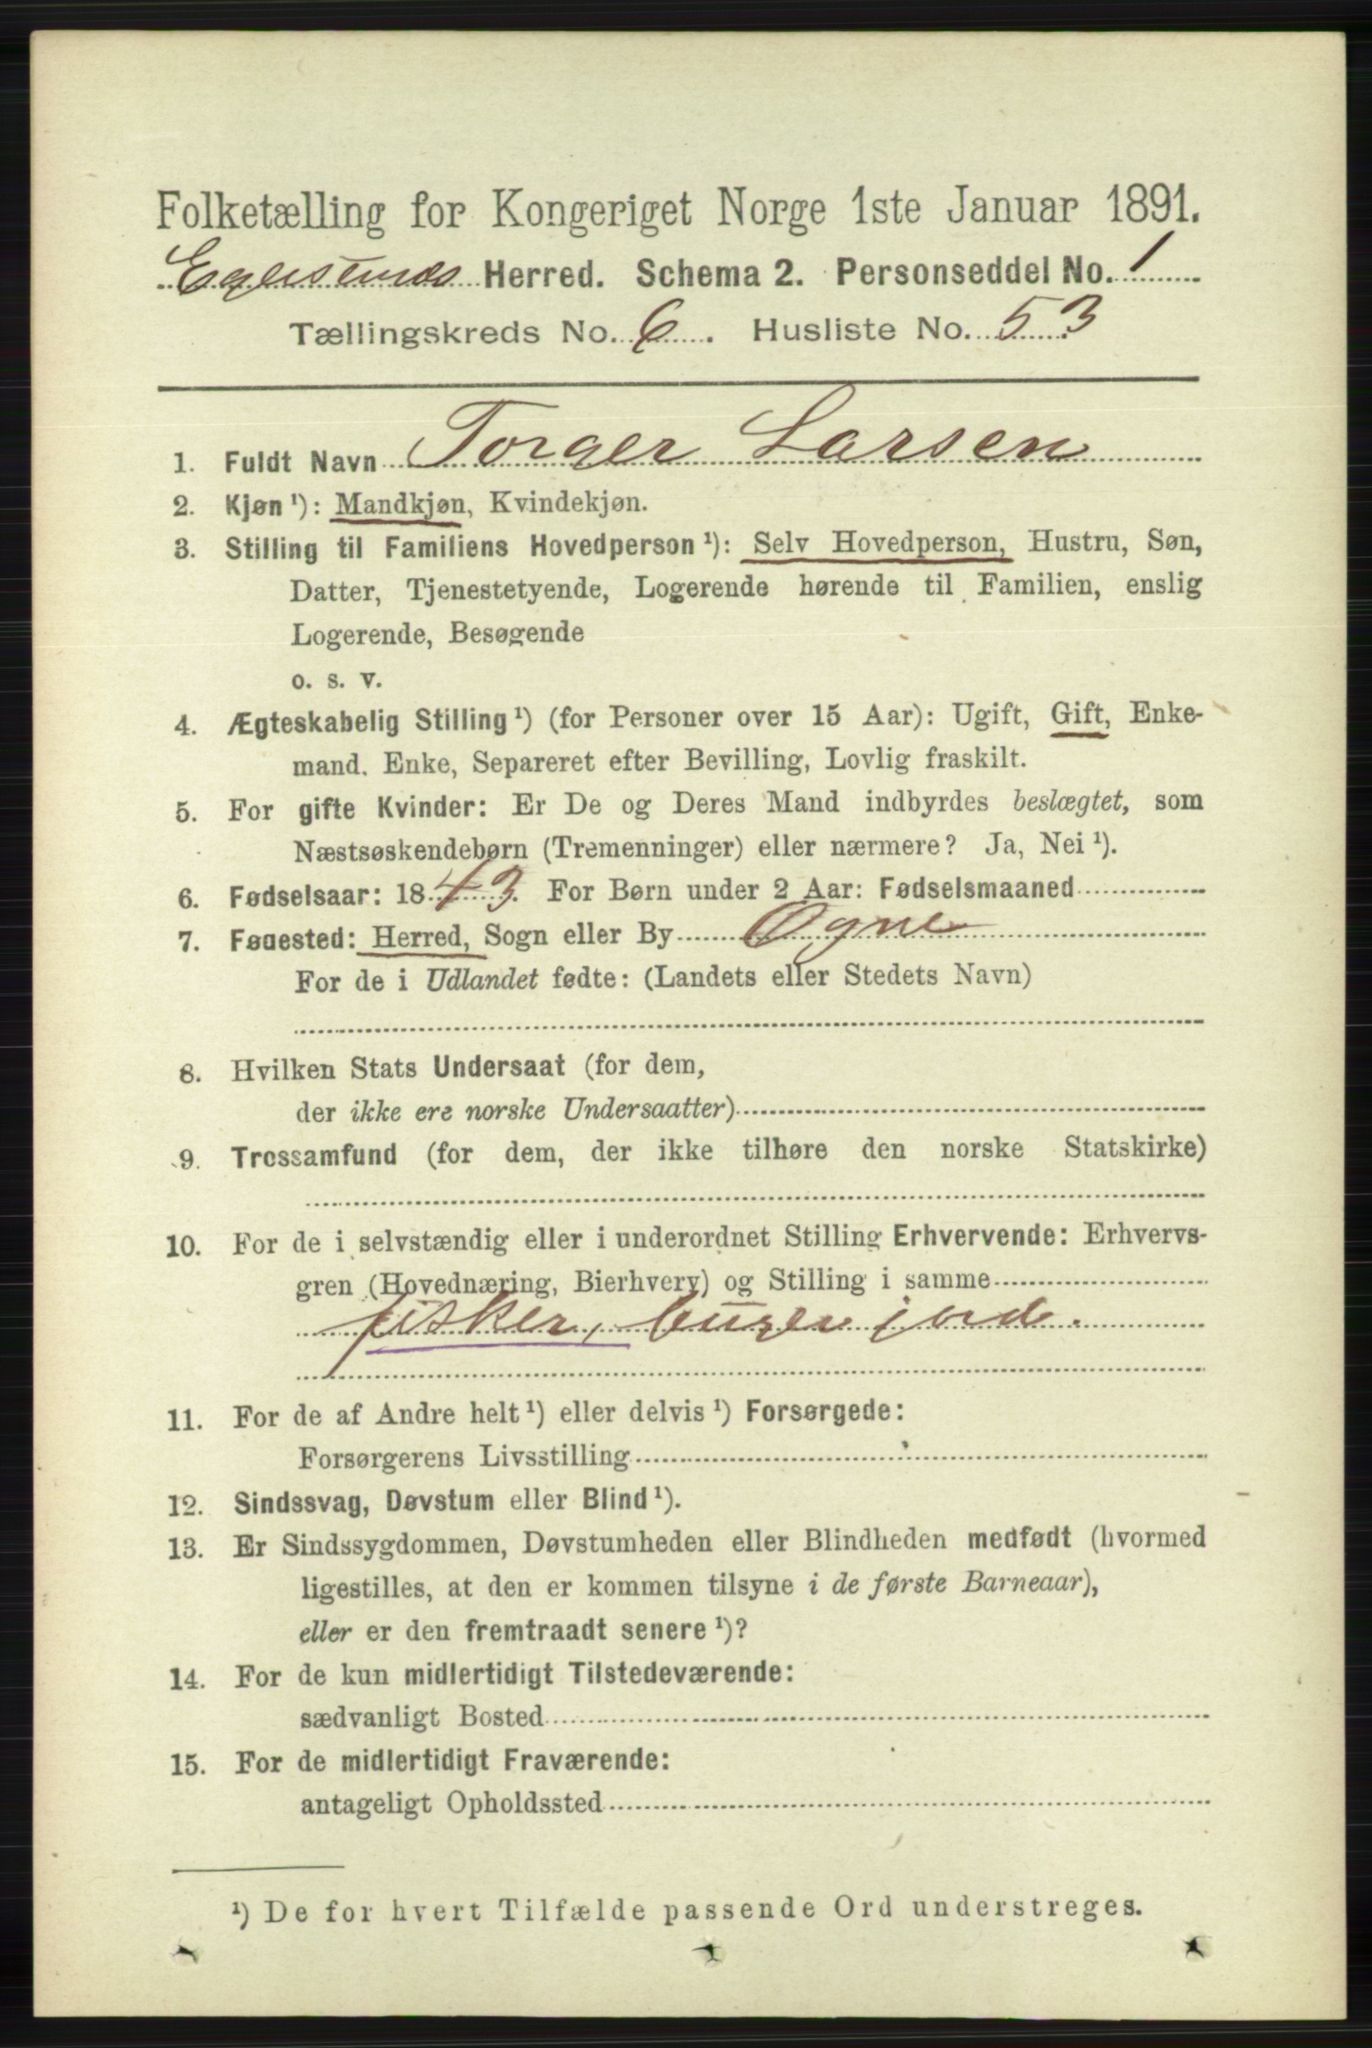 Folketælling for Kongeriget Norge 1ste Januar 1891.
Egersunds Herred. Schema 2. Personseddel No. 1
Tællingskreds No. 6. Husliste No. 53
1. Fuldt Navn Torger Larsen
2. Kjøn ¹): Mandkjøn, Kvindekjøn.
3. Stilling til Familiens Hovedperson ¹): Selv Hovedperson, Hustru, Søn,
Datter, Tjenestetyende, Logerende hørende til Familien, enslig
Logerende, Besøgende
o. s. v.
4. Ægteskabelig Stilling ¹) (for Personer over 15 Aar): Ugift, Gift, Enke-
mand. Enke, Separeret efter Bevilling, Lovlig fraskilt.
5. For gifte Kvinder: Er De og Deres Mand indbyrdes beslægtet, som
Næstsøskendebørn (Tremenninger) eller nærmere? Ja, Nei ¹).
6. Fødselsaar: 1843. For Børn under 2 Aar: Fødselsmaaned
7. Fødested: Herred, Sogn eller By Ogne
For de i Udlandet fødte: (Landets eller Stedets Navn)
8. Hvilken Stats Undersaat (for dem,
der ikke ere norske Undersaatter)
9. Trossamfund (for dem, der ikke tilhøre den norske Statskirke)
10. For de i selvstændig eller i underordnet Stilling Erhvervende: Erhvervs-
gren (Hovednæring, Bierhverv) og Stilling i samme
fisker, buger jord.
11. For de af Andre helt ¹) eller delvis ¹) Forsørgede:
Forsørgerens Livsstilling
12. Sindssvag, Døvstum eller Blind ¹).
13. Er Sindssygdommen, Døvstumheden eller Blindheden medfødt (hvormed
ligestilles, at den er kommen tilsyne i de første Barneaar),
eller er den fremtraadt senere ¹)?
14. For de kun midlertidigt Tilstedeværende:
sædvanligt Bosted
15. For de midlertidigt Fraværende:
antageligt Opholdssted
¹) De for hvert Tilfælde passende Ord understreges.